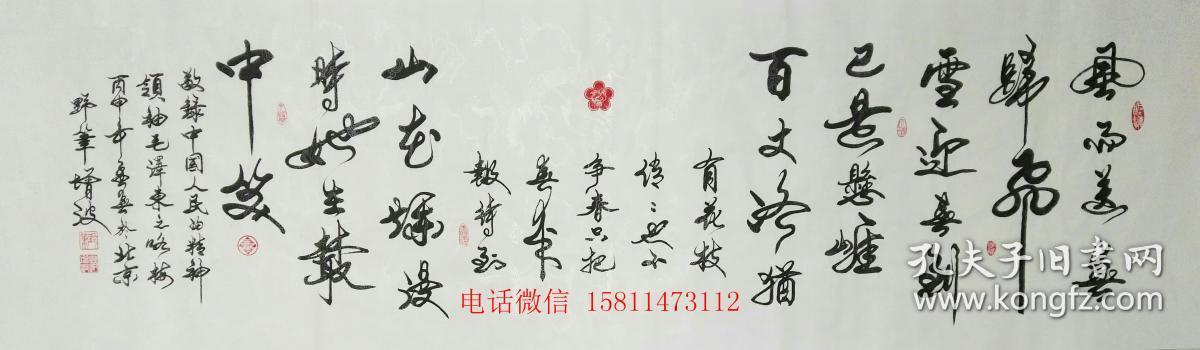 風雨送春
歸飛
雪迎春到
已是懸崖
百丈冰猶
有花枝
俏〻也不
争春只把
春来
報待到
山花爛漫
時她在叢
中笑
敬録中國人民的精神
領袖毛澤東之咏梅
丙申年孟春於北京
野筆增波
电话微信 15811473112
孔夫子旧書网
www.kongfz.com